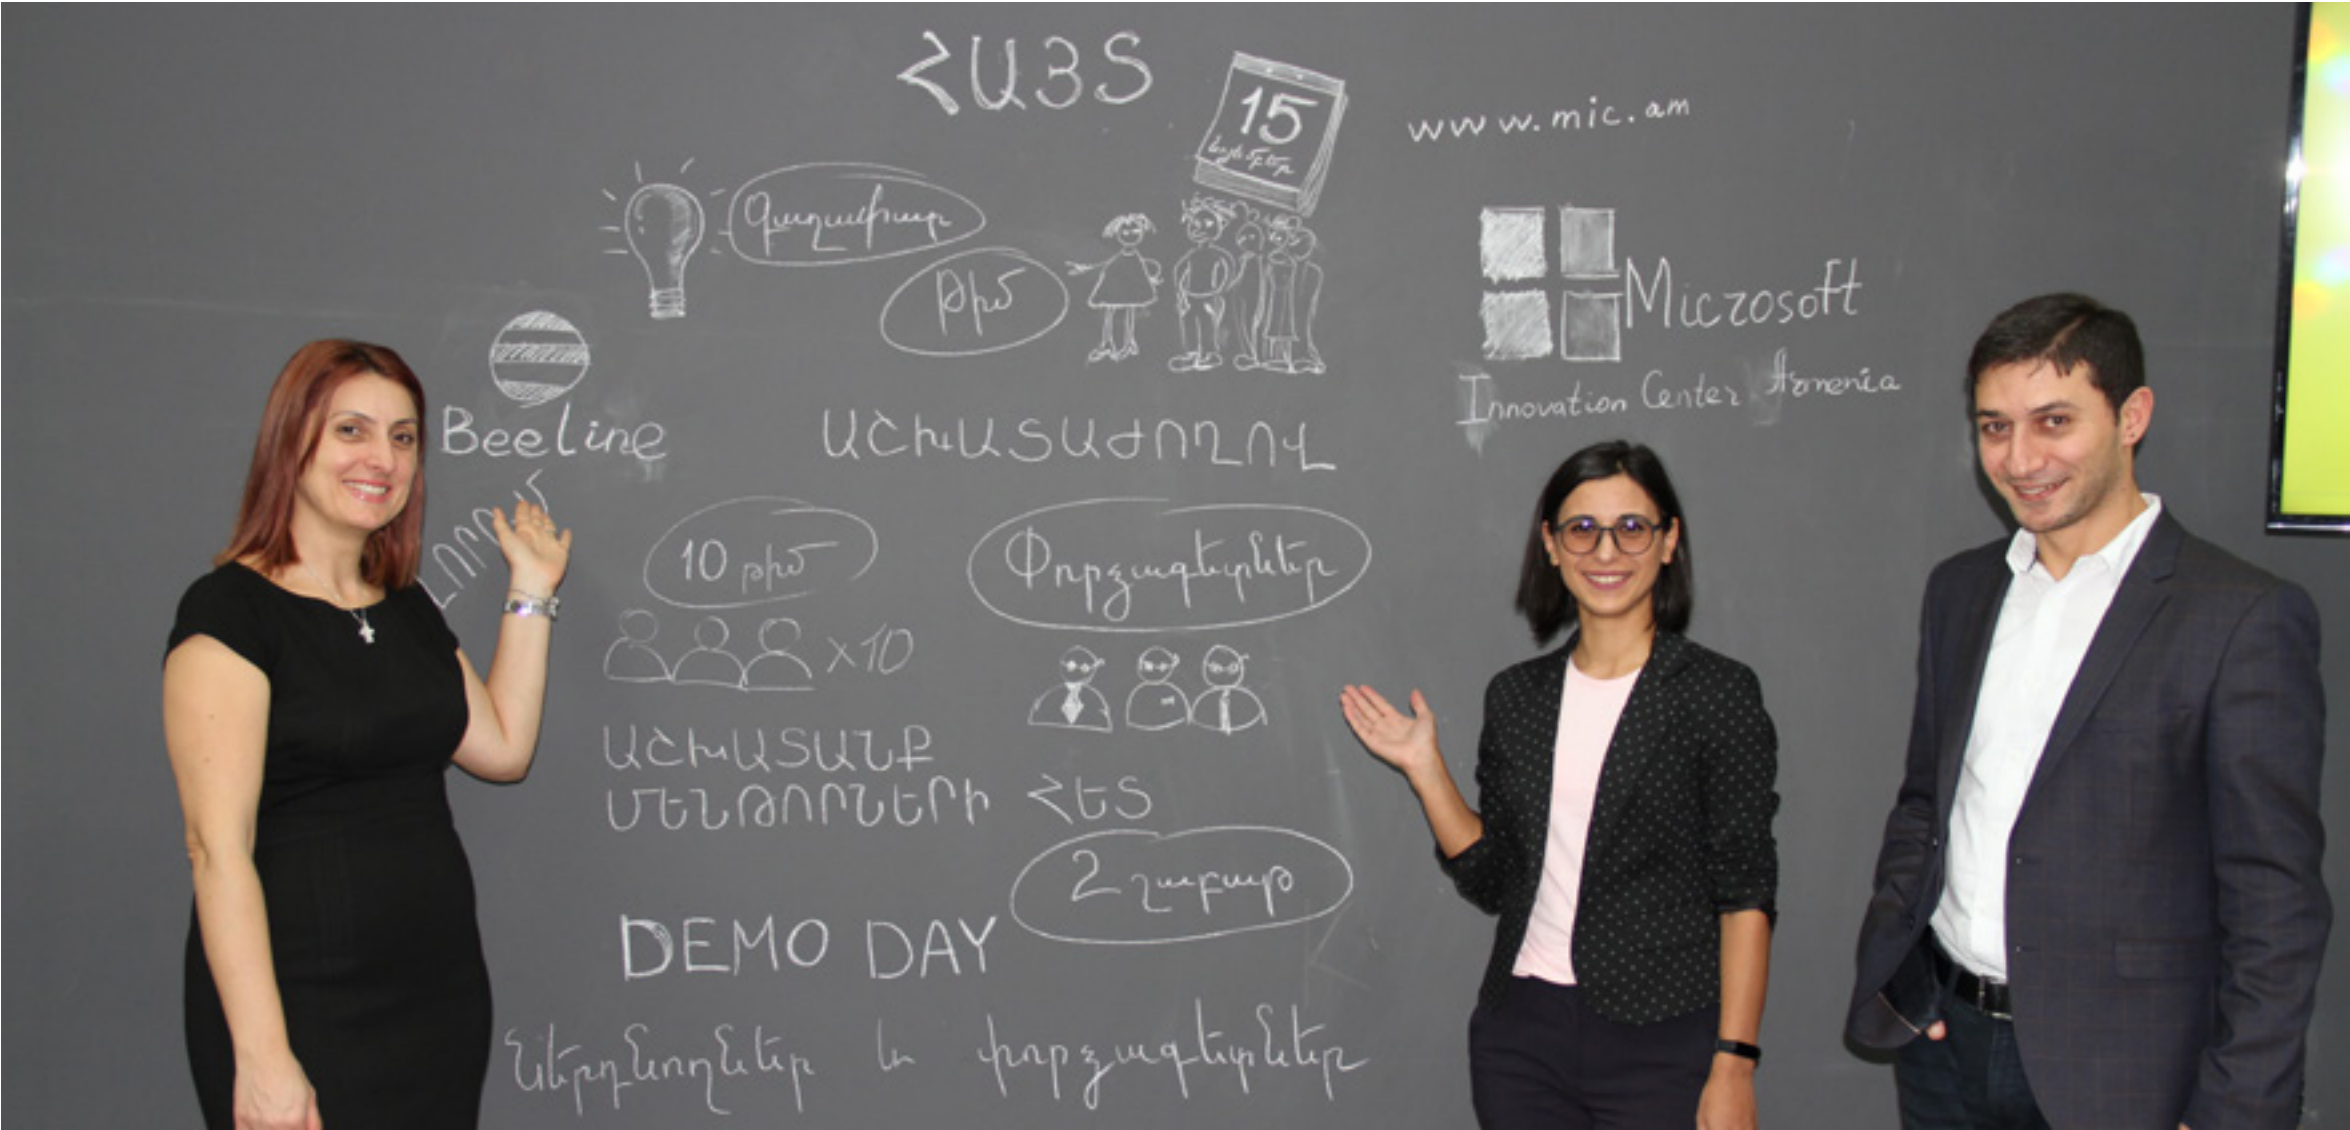 ՀԱՅՏ
15
նոյեմբեր
www.mic.am
Գաղափար
Թիմ
Microsoft
Innovation Center Armenia
Beeline
ԱՇԽԱՏԱԺՈՂՈՎ
10 թիմ
Փորձագետներ
x10
ԱՇԽԱՏԱՆՔ
ՄԵՆԹՈՐՆԵՐԻ ՀԵՏ
2 շաբաթ
DEMO DAY
Ներդնողներ և փորձագետներ